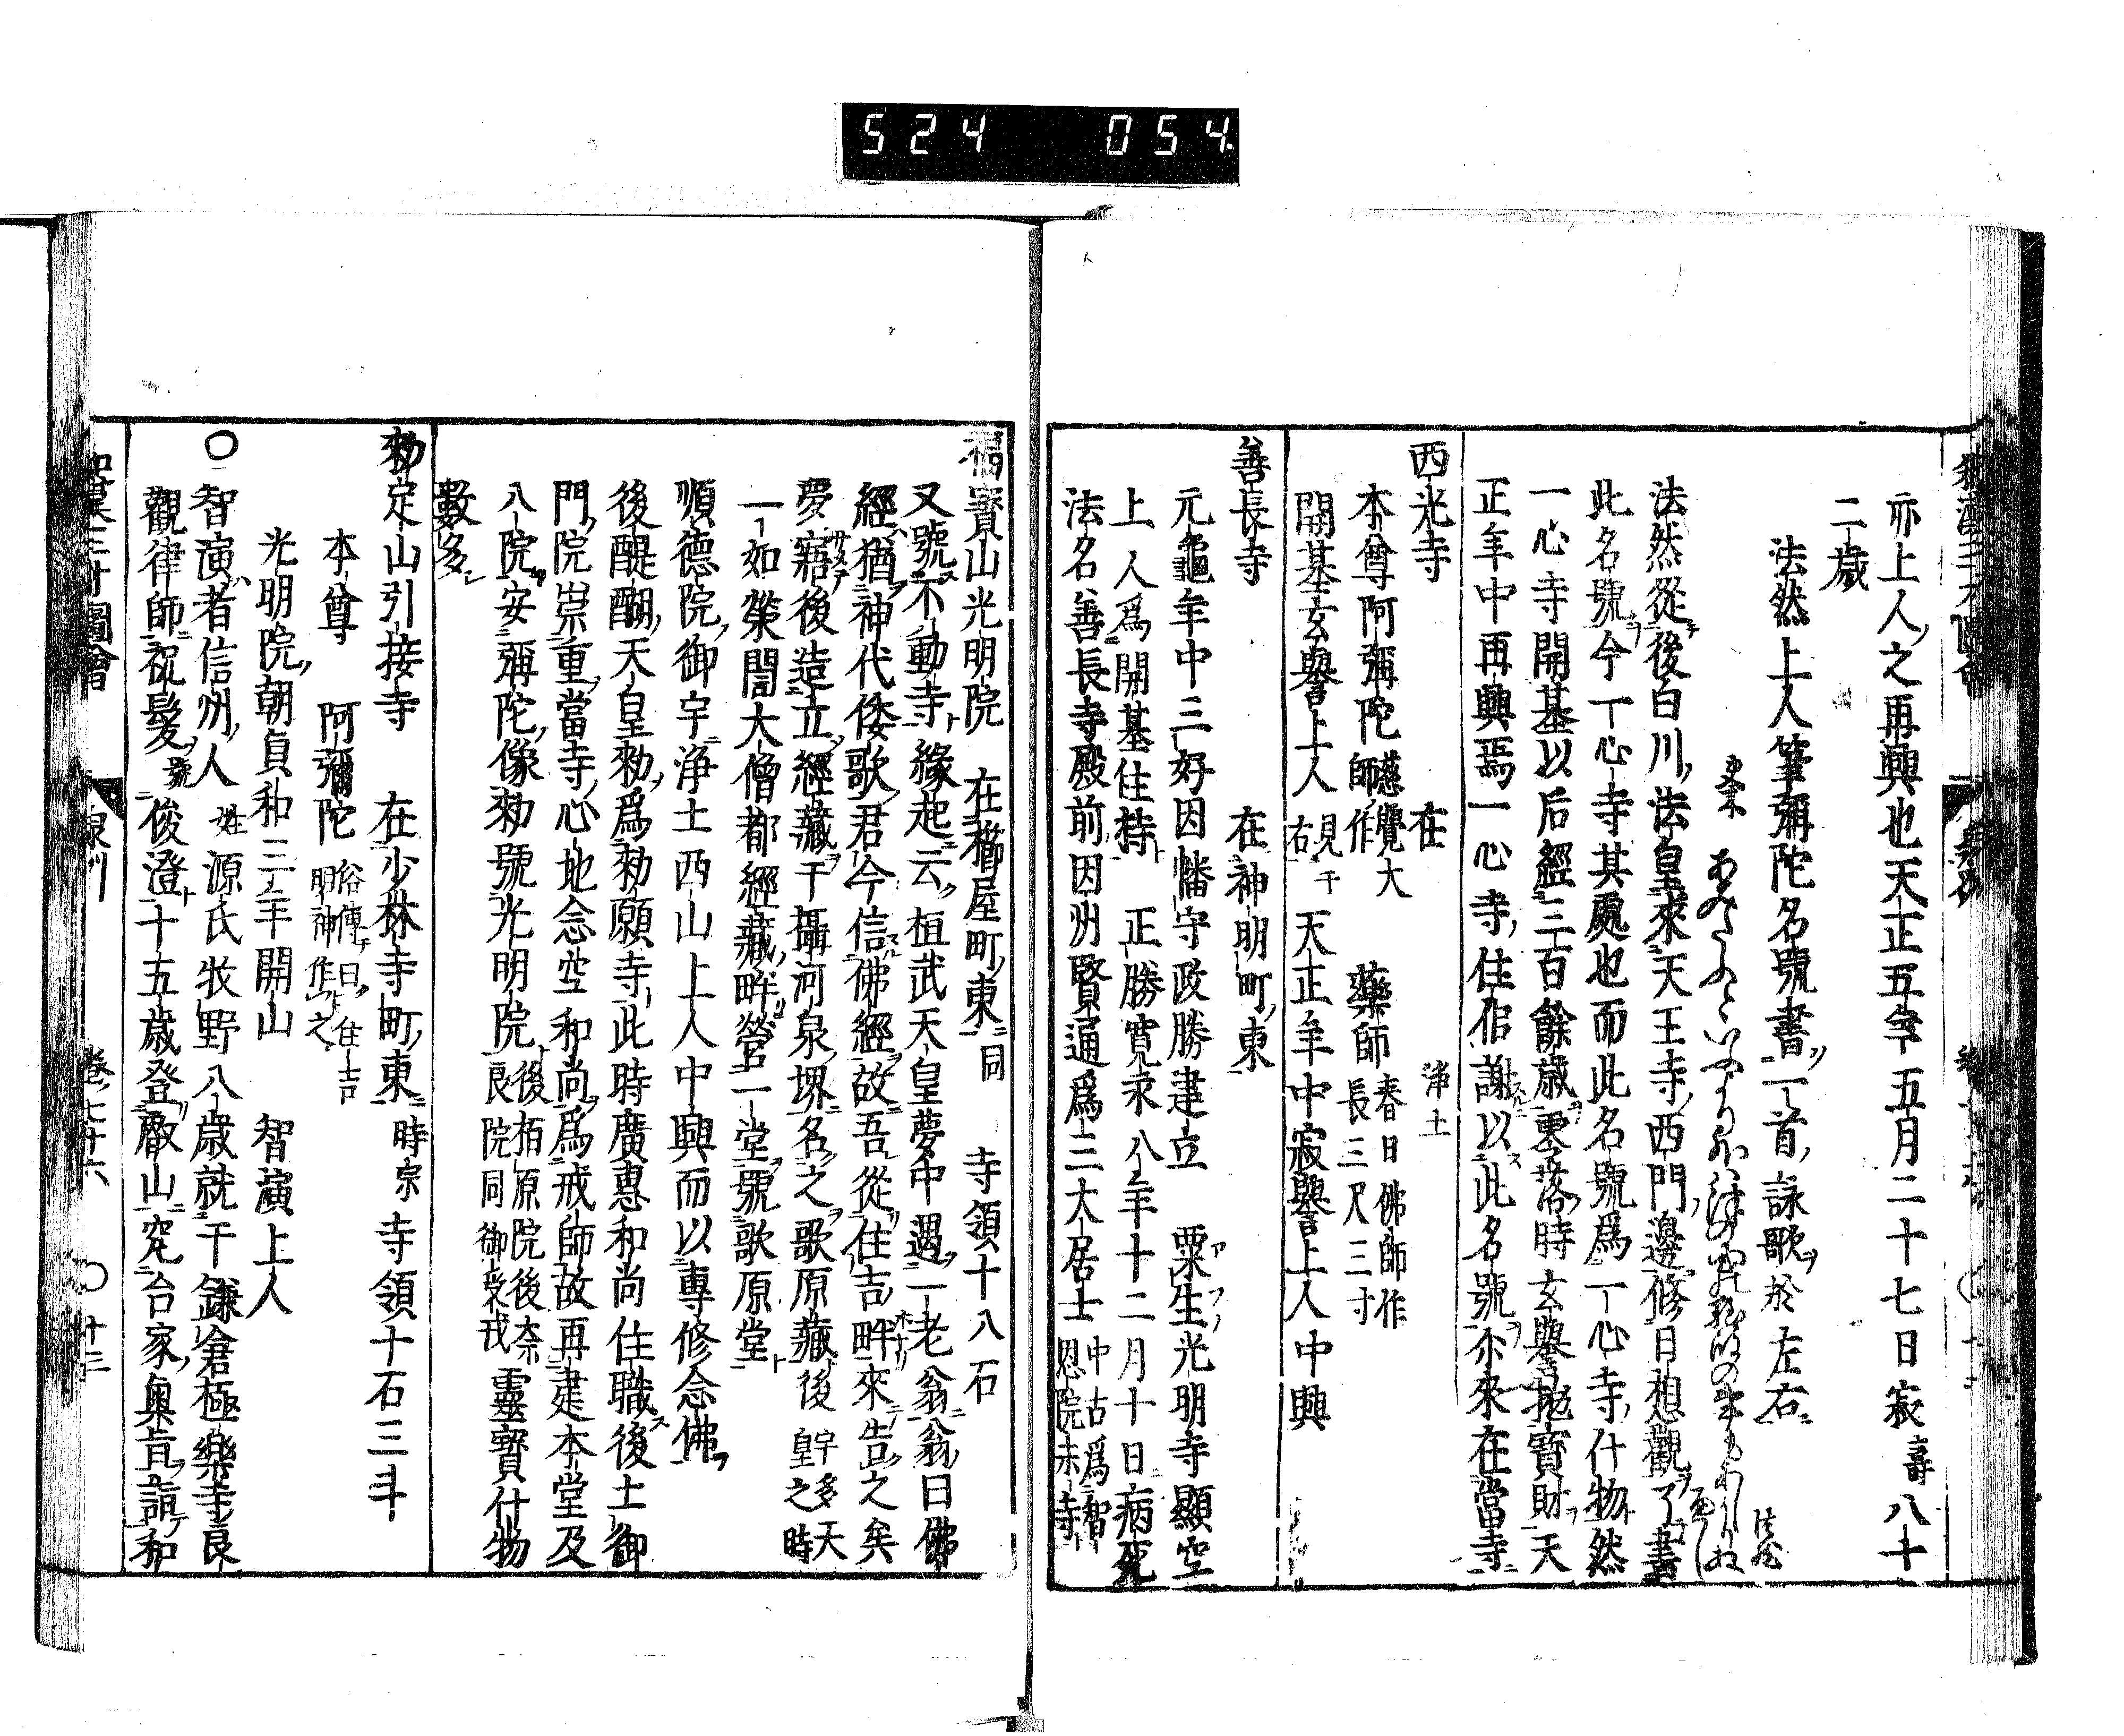 524 054
亦上人之再興也天正五年五月二十七日寂壽八十
二歳
法然上人筆彌陀名號書一首詠歌於左右
法然從後白川法皇來天王寺西門邊修日想觀了書
此名號今一心寺其處也而此名號爲一心寺什物然
一心寺開基以后經三百餘歳零落時玄譽抛寶財天
正年中再興焉一心寺住侶謝以此名號尓來在當寺
西光寺 在 浄土
本尊阿彌陀 慈覺大師作 藥師 春日佛師作 長三尺三寸
開基玄譽上人 見于右 天正年中寂譽上人中興
善長寺 在神明町東
元龜年中三好因幡守政勝建立 粟生光明寺顯空
上人爲開基住持 正勝寛永八年十二月十日病死
法名善長寺殿前因州賢通爲三大居士 中古爲智恩院末寺
福寶山光明院 在櫛屋町東 同 寺領十八石
又號不動寺縁起云桓武天皇夢中遇一老翁翁曰佛
經猶神代倭歌君今信佛經故吾從住吉畔來告之矣
夢寤後造立經藏于攝河泉堺名之歌原藏後 宇多天皇之時
一如榮誾大僧都經藏畔營一堂號歌原堂
順德院御宇浄土西山上人中興而以專修念佛
後醍醐天皇勅爲勅願寺此時廣惠和尚住職後土御
門院崇重當寺心地念空和尚爲戒師故再建本堂及
八院安彌陀像勅號光明院 後栢原院後奈良院同御受戒 靈寳什物
數多
勅定山引接寺 在少林寺町東 時宗 寺領十石三斗
本尊 阿彌陀 俗傳曰住吉明神作之
光明院朝貞和三年開山 智演上人
○智演者信州人 姓源氏牧野八歳就于鎌倉極樂寺良
觀律師祝髪號俊澄十五歳登叡山究台家奥旨詣和
和漢三才圖會 泉州 卷七十六 ○十三